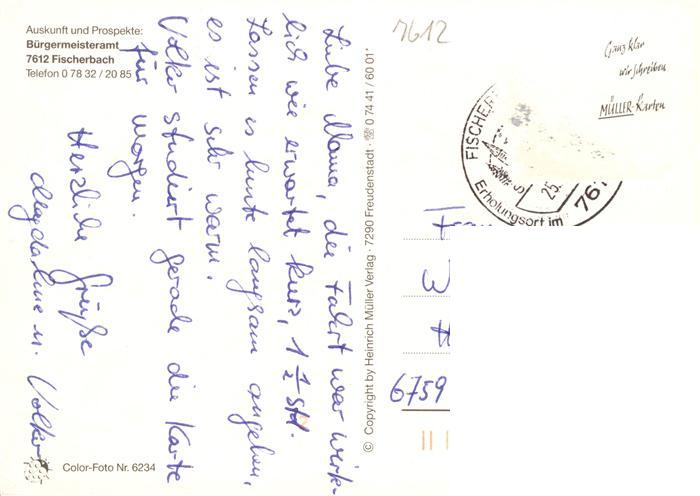 Auskunft und Prospekte:
Bürgermeisteramt
7612 Fischerbach
Telefon 0 78 32 / 20 85
Liebe Mama, die Fahrt war wirk-
lich wie erwartet kurz, 1 1/2 Std.
Lassen es heute langsam angehen,
es ist sehr warm.
Volker studiert gerade die Karte
für morgen.
Herzliche Grüße
Magdalene u. Volker
Color-Foto Nr. 6234
© Copyright by Heinrich Müller Verlag · 7290 Freudenstadt · ☏ 0 74 41 / 60 01*
7612
Ganz klar
wir schreiben
MÜLLER-Karten
FISCHER
Erholungsort im
25.
76
Frau
6759